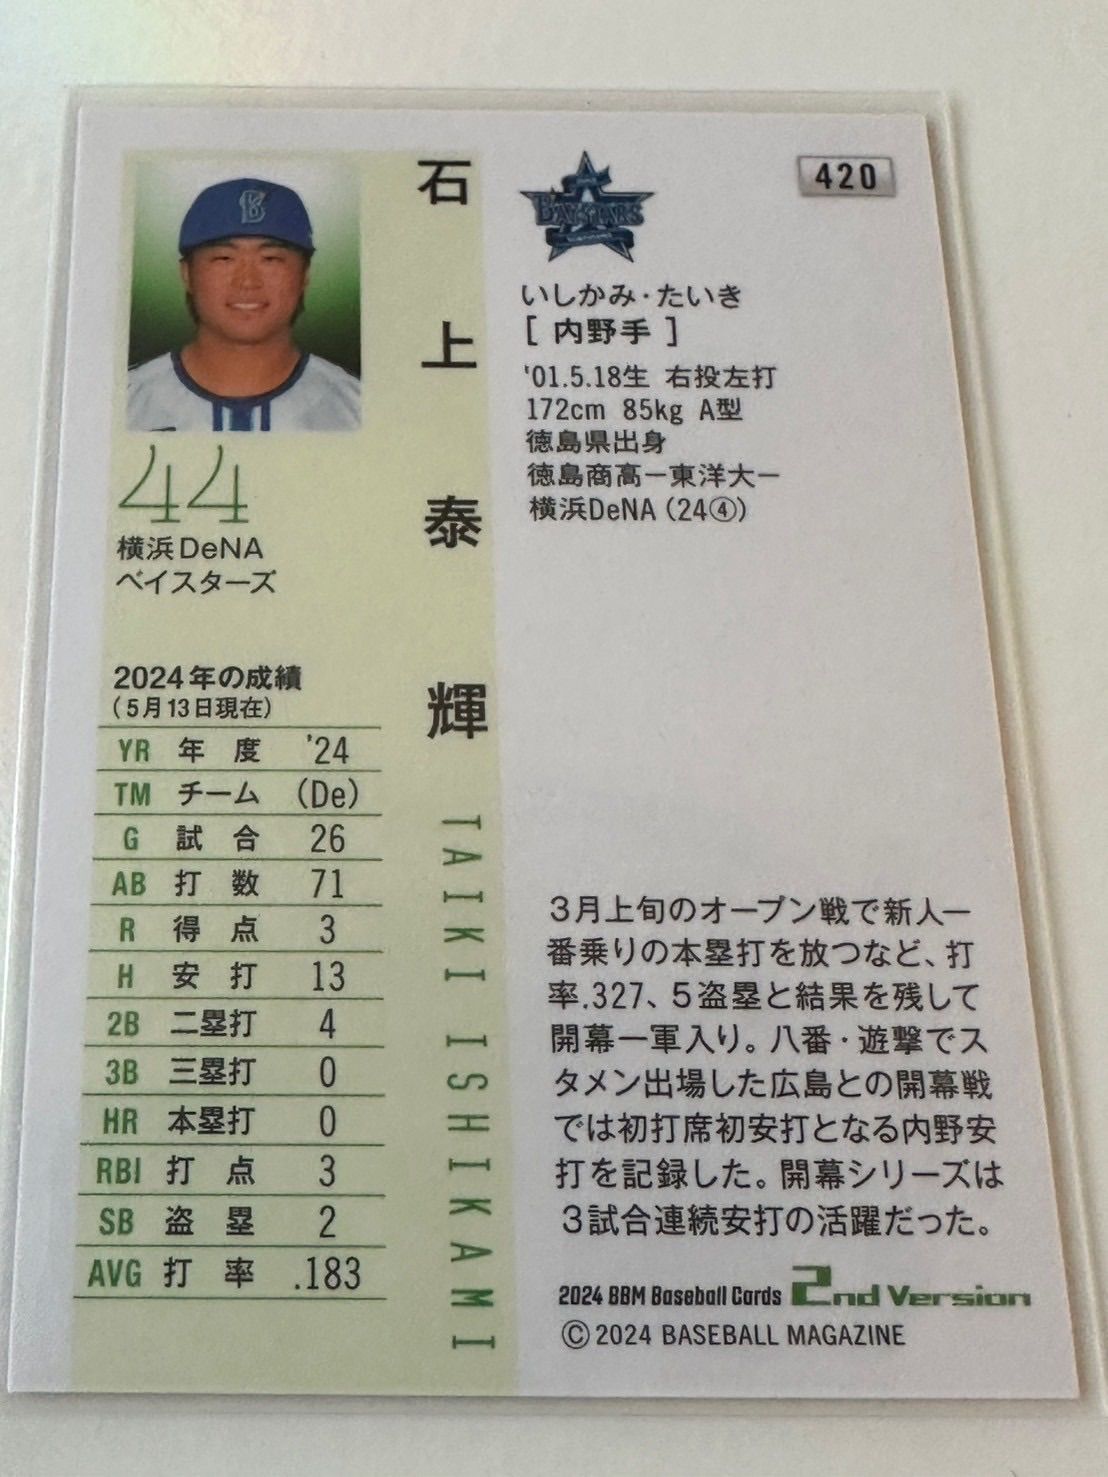 石上泰輝
TAIKI ISHIKAMI
44
横浜DeNA
ベイスターズ
2024年の成績
(5月13日現在)
YR 年度 '24
TM チーム (De)
G 試合 26
AB 打数 71
R 得点 3
H 安打 13
2B 二塁打 4
3B 三塁打 0
HR 本塁打 0
RBI 打点 3
SB 盗塁 2
AVG 打率 .183
BAYSTARS
420
いしかみ・たいき
[ 内野手 ]
'01.5.18生 右投左打
172cm 85kg A型
徳島県出身
徳島商高ー東洋大ー
横浜DeNA(24④)
3月上旬のオープン戦で新人一
番乗りの本塁打を放つなど、打
率.327、5盗塁と結果を残して
開幕一軍入り。八番・遊撃でス
タメン出場した広島との開幕戦
では初打席初安打となる内野安
打を記録した。開幕シリーズは
3試合連続安打の活躍だった。
2024 BBM Baseball Cards 2nd Version
© 2024 BASEBALL MAGAZINE